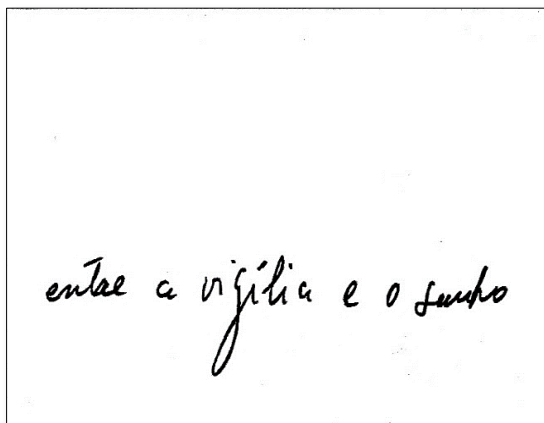 entre a vigília e o sonho